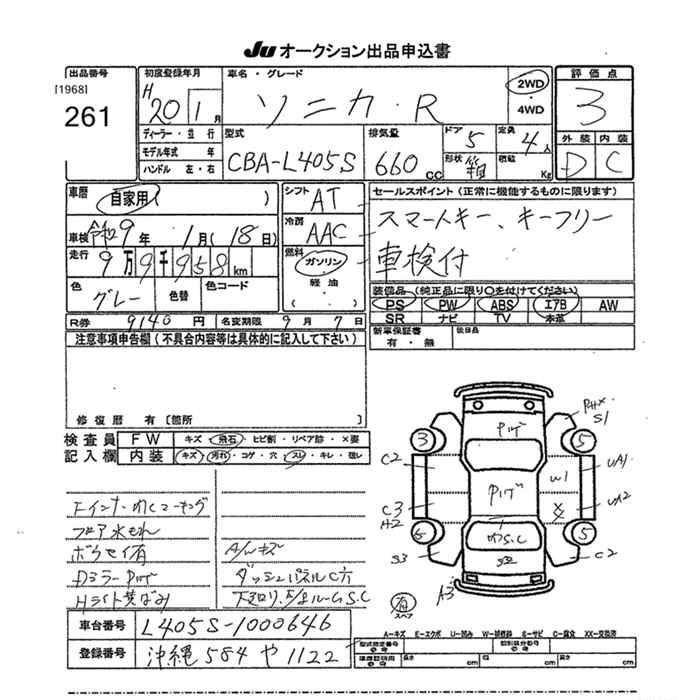 JU オークション出品申込書
出品番号
[1968]
261
初度登録年月
H 20 1 月
車名・グレード
ソニカ・R
2WD
・4WD
評価点
3
外装 内装
D C
ディーラー・並行
モデル年式 年
ハンドル 左・右
型式
CBA-L405S
排気量
660 CC
ドア 5
形状 箱
定員 4人
積載 Kg
車歴 自家用( )
車検 令和9年 1月(18日)
走行 9万9千958km
色 グレー
色替
色コード
R券 9140円
名変期限 9月7日
シフト AT
冷房 AAC
燃料 ガソリン
軽油
セールスポイント(正常に機能するものに限ります)
スマートキー、キーフリー
車検付
装備品(純正品に限り○を付けてください)
PS PW ABS エアB AW
SR ナビ TV 本革
新車保証書
有・無
後日品
注意事項申告欄(不具合内容等は具体的に記入して下さい)
修復歴 有[箇所
検査員記入欄
FW キズ・飛石・ヒビ割・リペア跡・×要
内装 キズ・汚れ・コゲ・穴・スレ・キレ・強レ
フロア水もれ
ボウセイ有
Dミラー
Hライト黄ばみ
A/Wキズ
ダッシュパネルC穴
下廻り、E/gルームS.C
3
5
5
5
C2
C3
A2
S3
A3
S1
UA1
UA2
W1
X
C2
有
スペア
A-キズ E-エクボ U-凹み W-補修跡 S-サビ C-腐食 XX-交換済
車台番号 L405S-1000646
登録番号 沖縄 584 や 1122
長さ cm 幅 cm 高さ cm